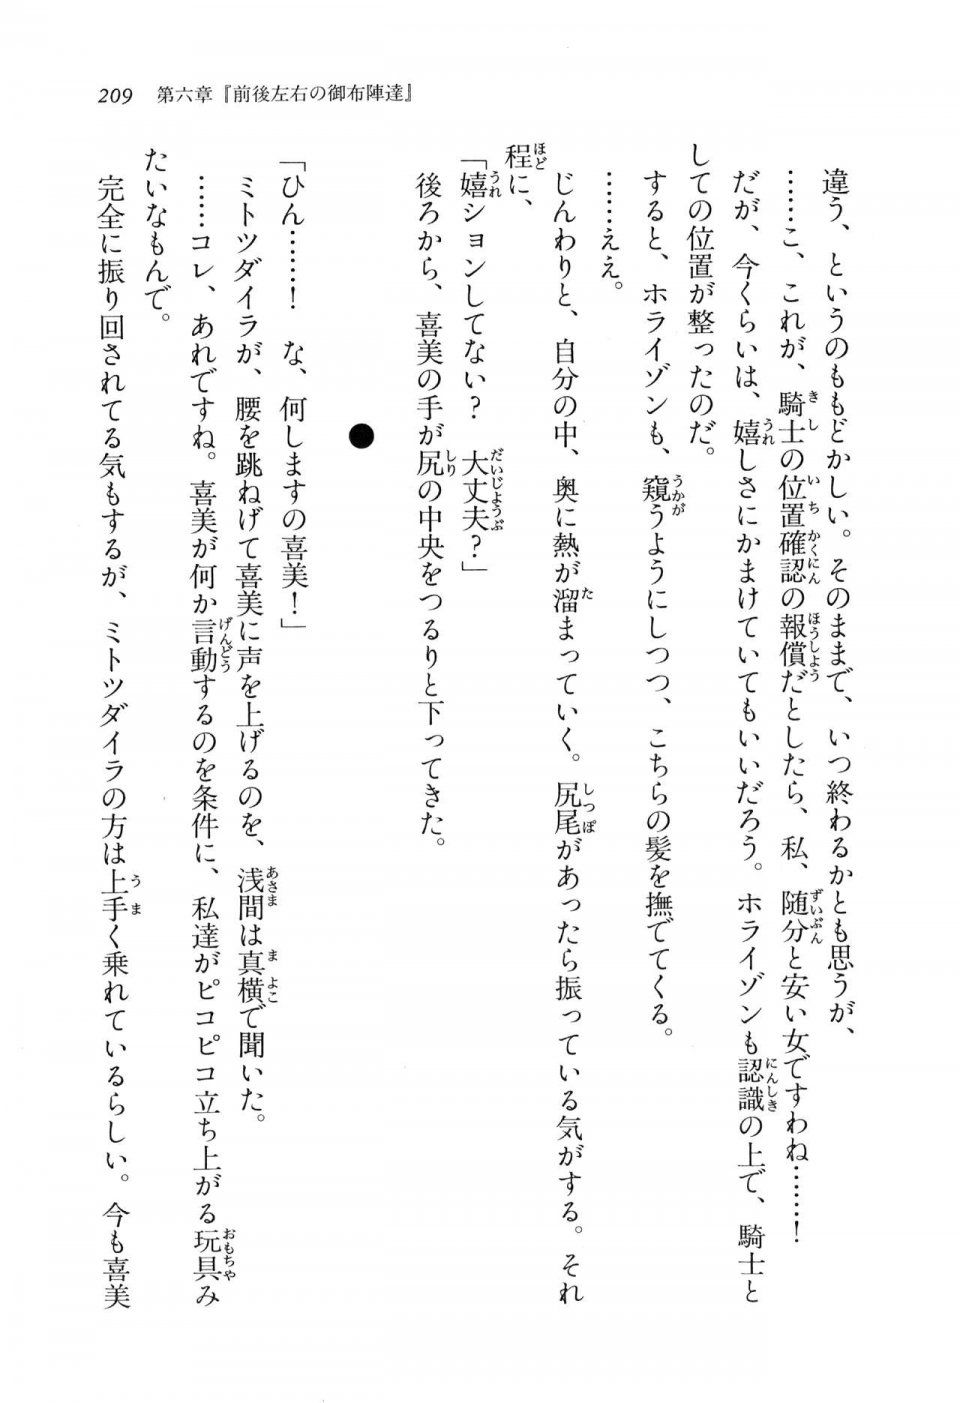 209　第六章『前後左右の御布陣達』
違う、というのももどかしい。そのままで、いつ終わるかとも思うが、
……こ、これが、騎士の位置確認の報償だとしたら、私、随分と安い女ですわね……！
だが、今くらいは、嬉しさにかまけていてもいいだろう。ホライゾンも認識の上で、騎士と
しての位置が整ったのだ。
すると、ホライゾンも、窺うようにしつつ、こちらの髪を撫でてくる。
……ええ。
じんわりと、自分の中、奥に熱が溜まっていく。尻尾があったら振っている気がする。それ
程に、
「嬉ションしてない？　大丈夫？」
後ろから、喜美の手が尻の中央をつるりと下ってきた。
●
「ひん……！　な、何しますの喜美！」
ミトツダイラが、腰を跳ねげて喜美に声を上げるのを、浅間は真横で聞いた。
……コレ、あれですね。喜美が何か言動するのを条件に、私達がピコピコ立ち上がる玩具み
たいなもんで。
完全に振り回されてる気もするが、ミトツダイラの方は上手く乗れているらしい。今も喜美